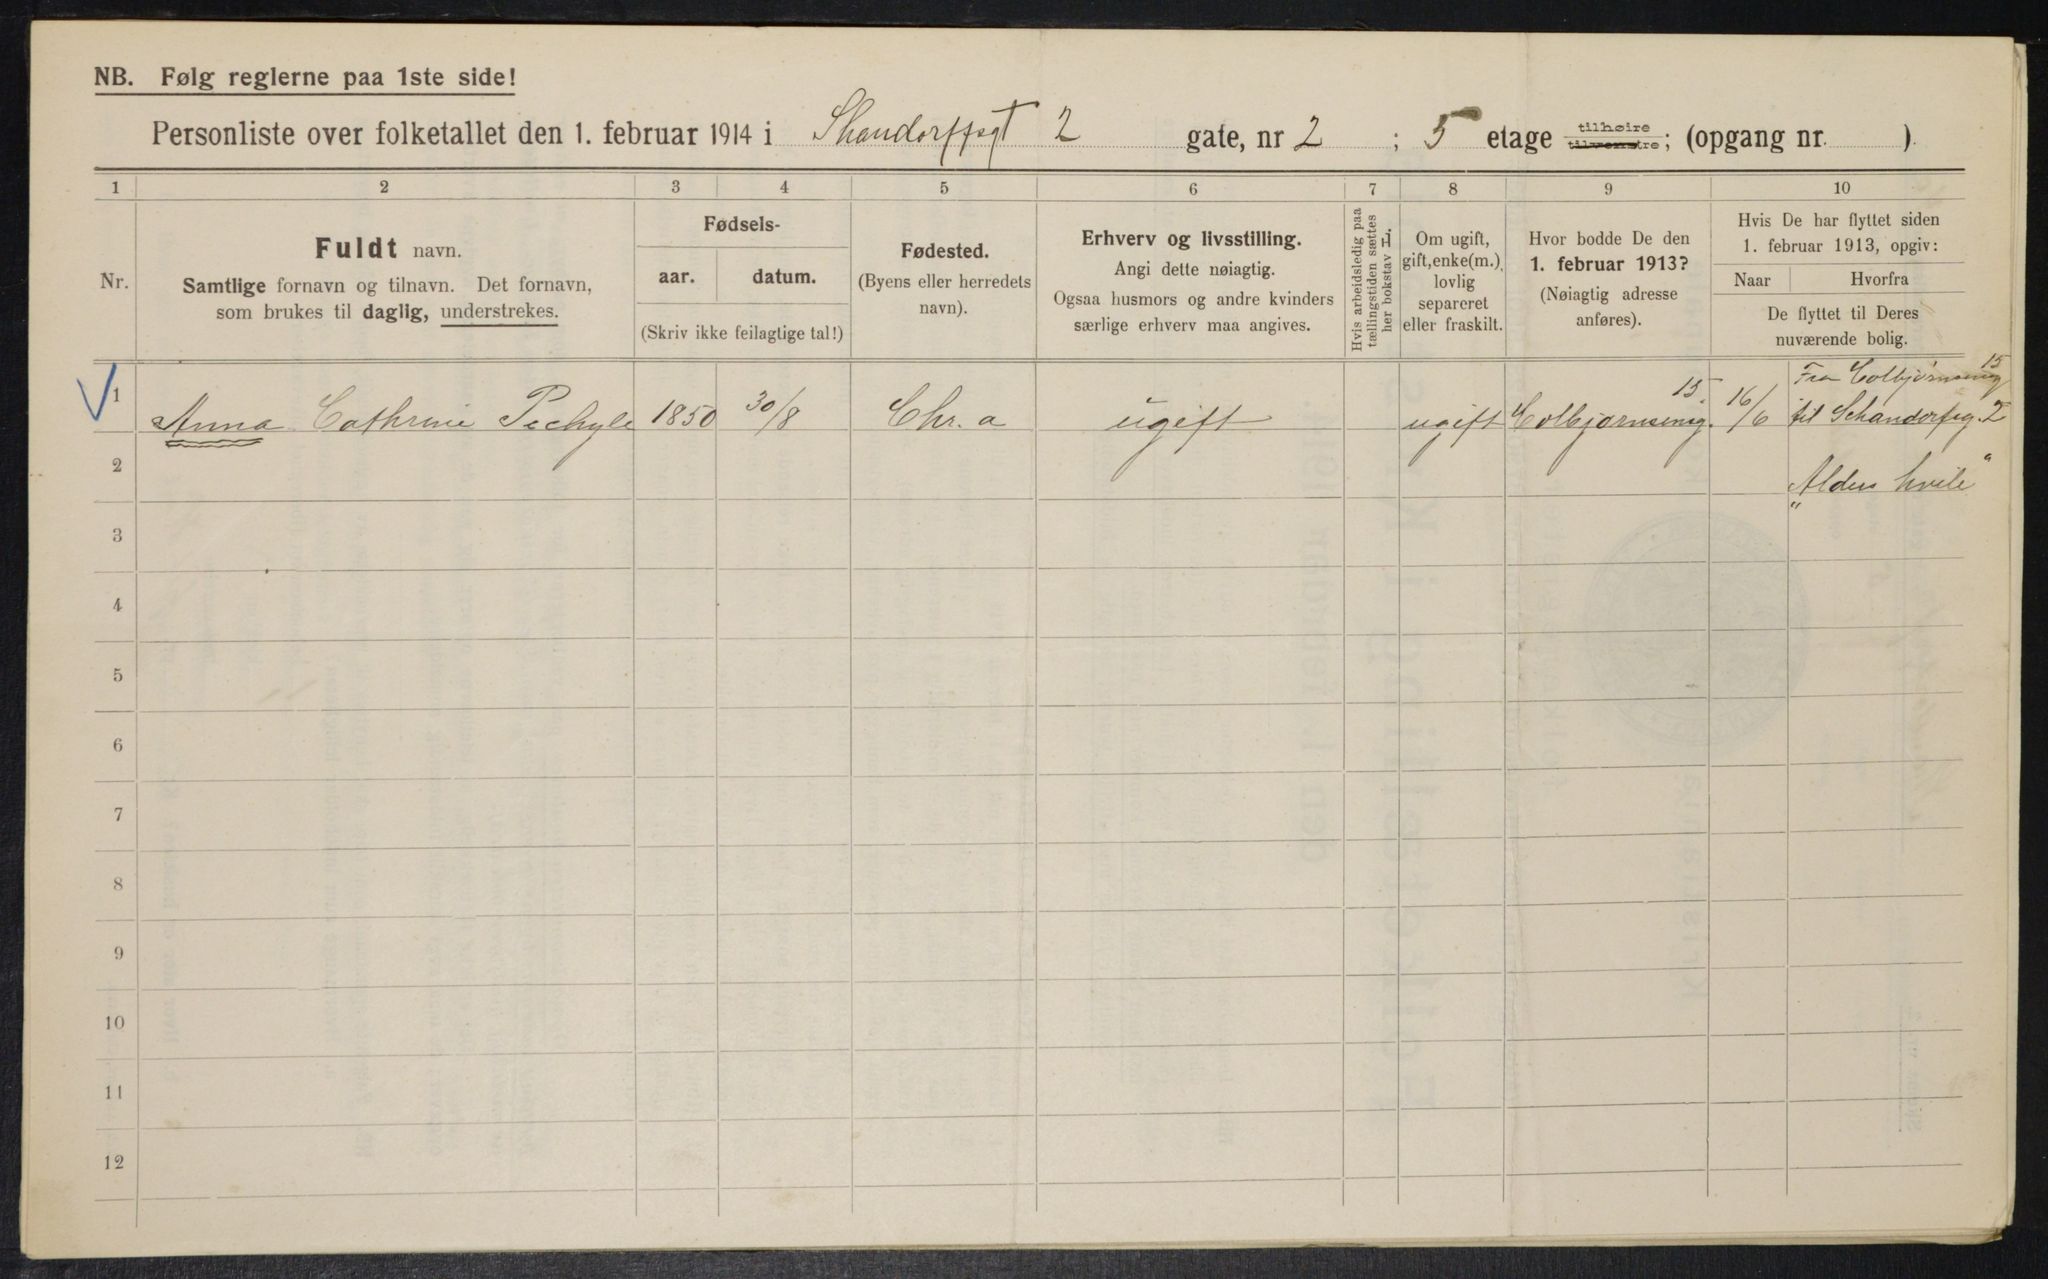 NB. Følg reglerne paa 1ste side!
Personliste over folketallet den 1. februar 1914 i Skandorffsgt 2 gate, nr 2 ; 5 etage tilhøire tilvenstre; (opgang nr. )
1 2 3 4 5 6 7 8 9 10
Nr.
Fuldt navn.
Samtlige fornavn og tilnavn. Det fornavn,
som brukes til daglig, understrekes.
Fødsels-
aar. datum.
(Skriv ikke feilagtige tal!)
Fødested.
(Byens eller herredets
navn).
Erhverv og livsstilling.
Angi dette nøiagtig.
Ogsaa husmors og andre kvinders
særlige erhverv maa angives.
Hvis arbeidsledig paa
tællingstiden sættes
her bokstav L.
Om ugift,
gift, enke(m.),
lovlig
separeret
eller fraskilt.
Hvor bodde De den
1. februar 1913?
(Nøiagtig adresse
anføres).
Hvis De har flyttet siden
1. februar 1913, opgiv:
Naar Hvorfra
De flyttet til Deres
nuværende bolig.
1 Anna Cathrine Pechyle 1850 30/8 Chr. a ugift ugift Colbjørnsensg. 15. 16/6 Fra Colbjørnsensg 15
til Schandorfsg. 2
2 "Alders hvile"
3
4
5
6
7
8
9
10
11
12